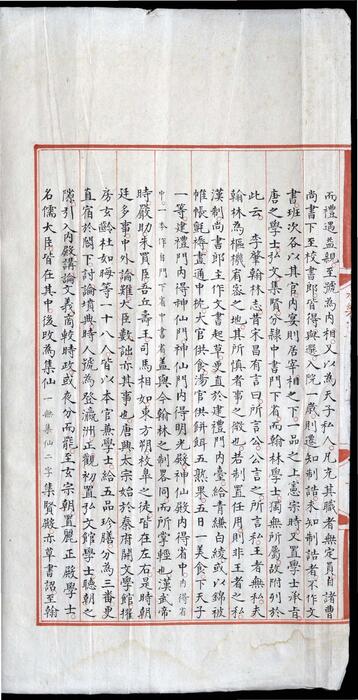 而禮遇益親至號為内相又以為天子私人凡充其職者無定員自諸曹
尚書下至校書郎皆得與選入院一歲則遷知制誥未知制誥者不作文
書班次各以其官内宴則居宰相之下一品之上憲宗時又置學士承旨
唐之學士弘文集賢分隸中書門下省而翰林學士獨無所屬故附列於
此云李肇翰林志昔宋昌有言曰所言公公言之所言私王者無私夫
翰林為樞機宥密之地其所慎者事之微也若制置任用則非王者之私
漢制尚書郎主作文書起草更直於建禮門内臺給青縑白綾或以錦被
帷帳氈褥畫通中枕大官供食湯官供餅餌五熟果五日一美食下天子
一等建禮門内得神仙門神仙門内得明光殿神仙殿内得省中内得省
中一本作自門下省中書省蓋與今翰林之制畧同而所掌輕也漢武帝
時嚴助朱買臣吾丘壽王司馬相如東方朔枚皋之徒皆在左右是時朝
廷多事中外論難大臣數詘亦其事也唐興太宗始於秦府開文學館擢
房玄齡杜如晦等一十八人皆以本官兼學士給五品珍膳分為三番更
直宿於閣下討論墳典時人號為登瀛洲正觀初置弘文館學士聽朝之
隙引入内殿講論文義商較時政或夜分而罷至玄宗朝置麗正殿學士
名儒大臣皆在其中後改為集仙一無集仙二字集賢殿亦尊書詔至翰